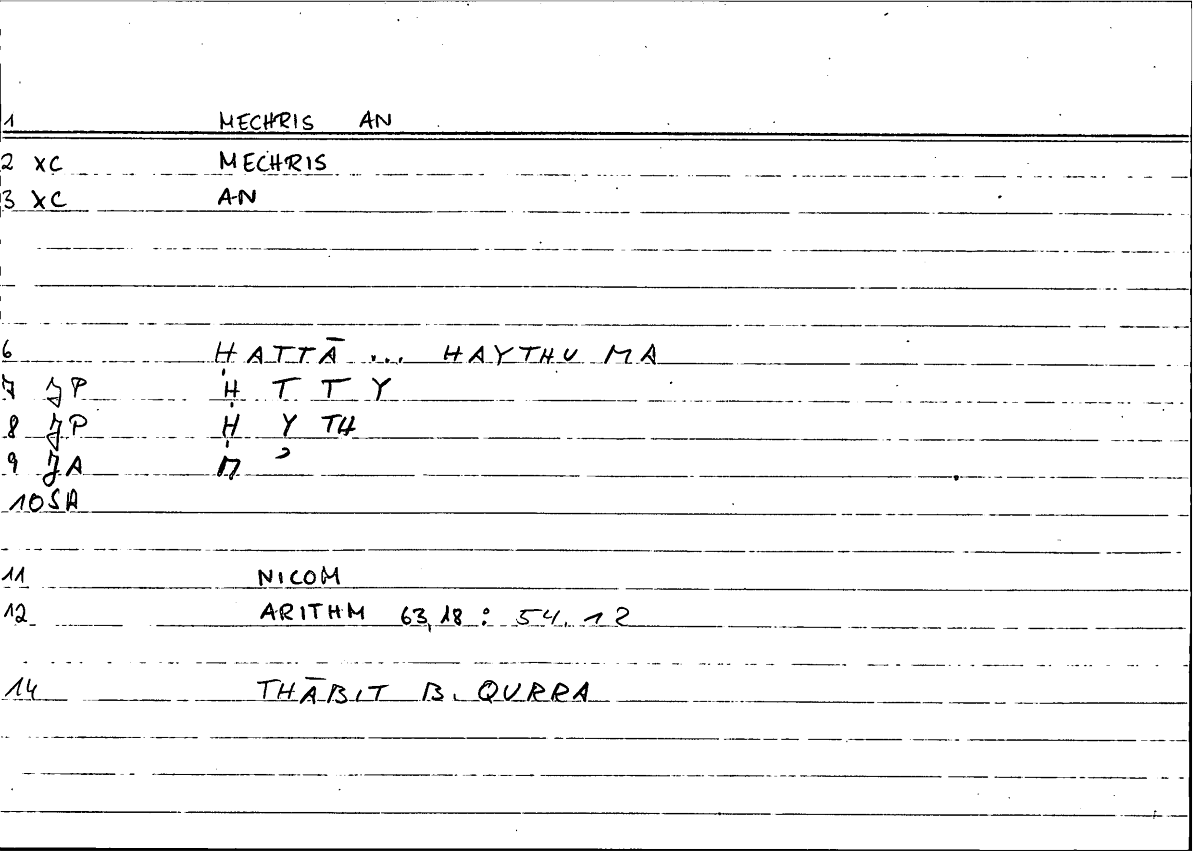 1 MECHRIS AN
2 XC MECHRIS
3 XC AN
6 HATTĀ ... HAYTHU MA
7 JP Ḥ T T Y
8 JP Ḥ Y TH
9 JA M ʾ
10 SA
11 NICOM
12 ARITHM 63,18 : 54.12
14 THĀBIT B. QURRA